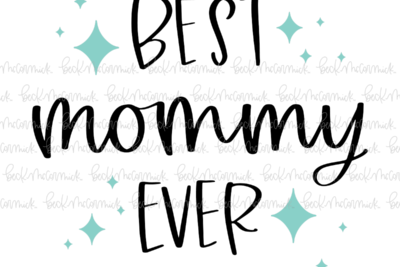 BEST
mommy
EVER